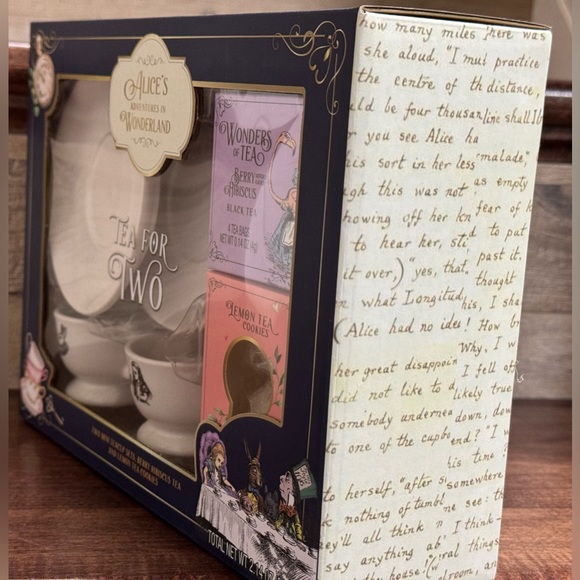 ALICE'S
ADVENTURES IN
WONDERLAND
TEA FOR
TWO
WONDERS
OF TEA
BERRY
HIBISCUS
BLACK TEA
4 TEA BAGS
NET WT 0.14 OZ (4g)
LEMON TEA
COOKIES
TWO MINI TEACUP SETS, BERRY HIBISCUS TEA
AND LEMON TEA COOKIES
TOTAL NET WT 2.14
how many miles here was
she aloud, "I mus practice
the centre of th distance,
ld be four thousan line shall
r you see Alice ha
his sort in her less "malade,"
gh this was not as empty
howing off her kn fear of k
to hear her, sti d to put
it over,) "yes, that past it.
what Longitud thought
his, I sha
(Alice had no idea! How
Why, I w
her great disappoin I fell of
did not like to d likely true
somebody underneа down, dow
to one of the cupb end? "I w
his time
to herself, "after somewhere
nothing of tumbl me see: th
ey'll all think n I think-
say anything ab ral things
the house!